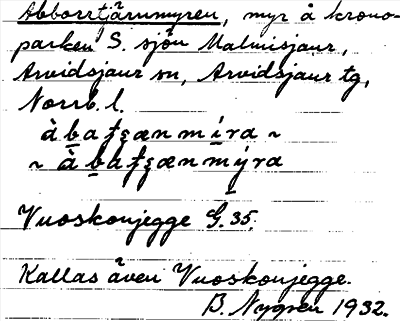 Abborrtjärnmyren, myr å krono-
parken S. sjön Malmisjaur,
Arvidsjaur sn, Arvidsjaur tg,
Norrb. l.
àbatʂæn míra ~
~ àbatʂænmýra
Vuoskonjegge G. 35.
Kallas även Vuoskonjegge.
B. Nygren 1932.